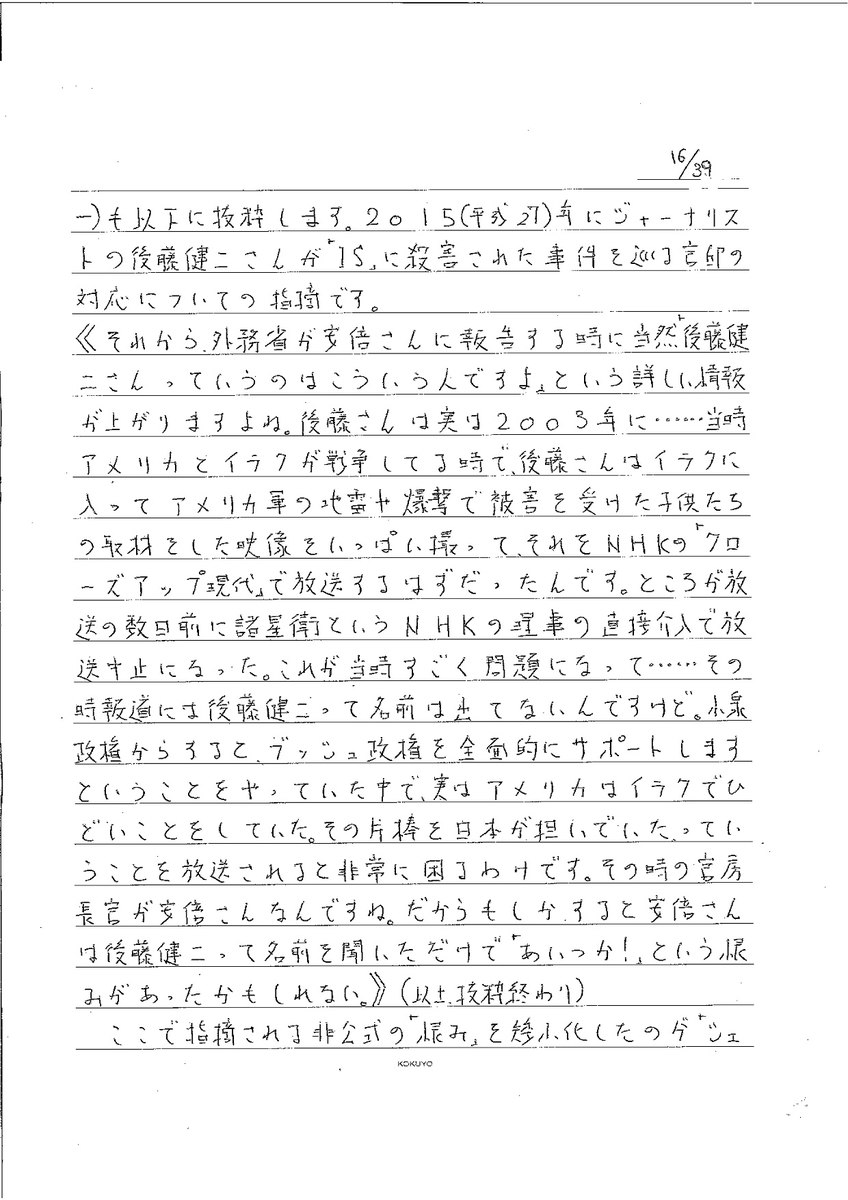 16/39
一)も以下に抜粋します。2015(平成27)年にジャーナリス
トの後藤健二さんが「IS」に殺害された事件を巡る官邸の
対応についての指摘です。
《それから、外務省が安倍さんに報告する時に当然「後藤健
二さんっていうのはこういう人ですよ」という詳しい情報
が上がりますよね。後藤さんは実は2003年に……当時
アメリカとイラクが戦争してる時で、後藤さんはイラクに
入ってアメリカ軍の地雷や爆撃で被害を受けた子供たち
の取材をした映像をいっぱい撮って、それをNHKの「クロ
ーズアップ現代」で放送するはずだったんです。ところが放
送の数日前に諸星衛というNHKの理事の直接介入で放
送中止になった。これが当時すごく問題になって……その
時報道には後藤健二って名前は出てないんですけど。小泉
政権からすると、ブッシュ政権を全面的にサポートします
ということをやっていた中で、実はアメリカはイラクでひ
どいことをしていた。その片棒を日本が担いでいた、ってい
うことを放送されると非常に困るわけです。その時の官房
長官が安倍さんなんですね。だからもしかすると安倍さん
は後藤健二って名前を聞いただけで「あいつか!」という恨
みがあったかもしれない。》(以上、抜粋終わり)
ここで指摘される非公式の「恨み」を矮小化したのが「シェ
KOKUYO